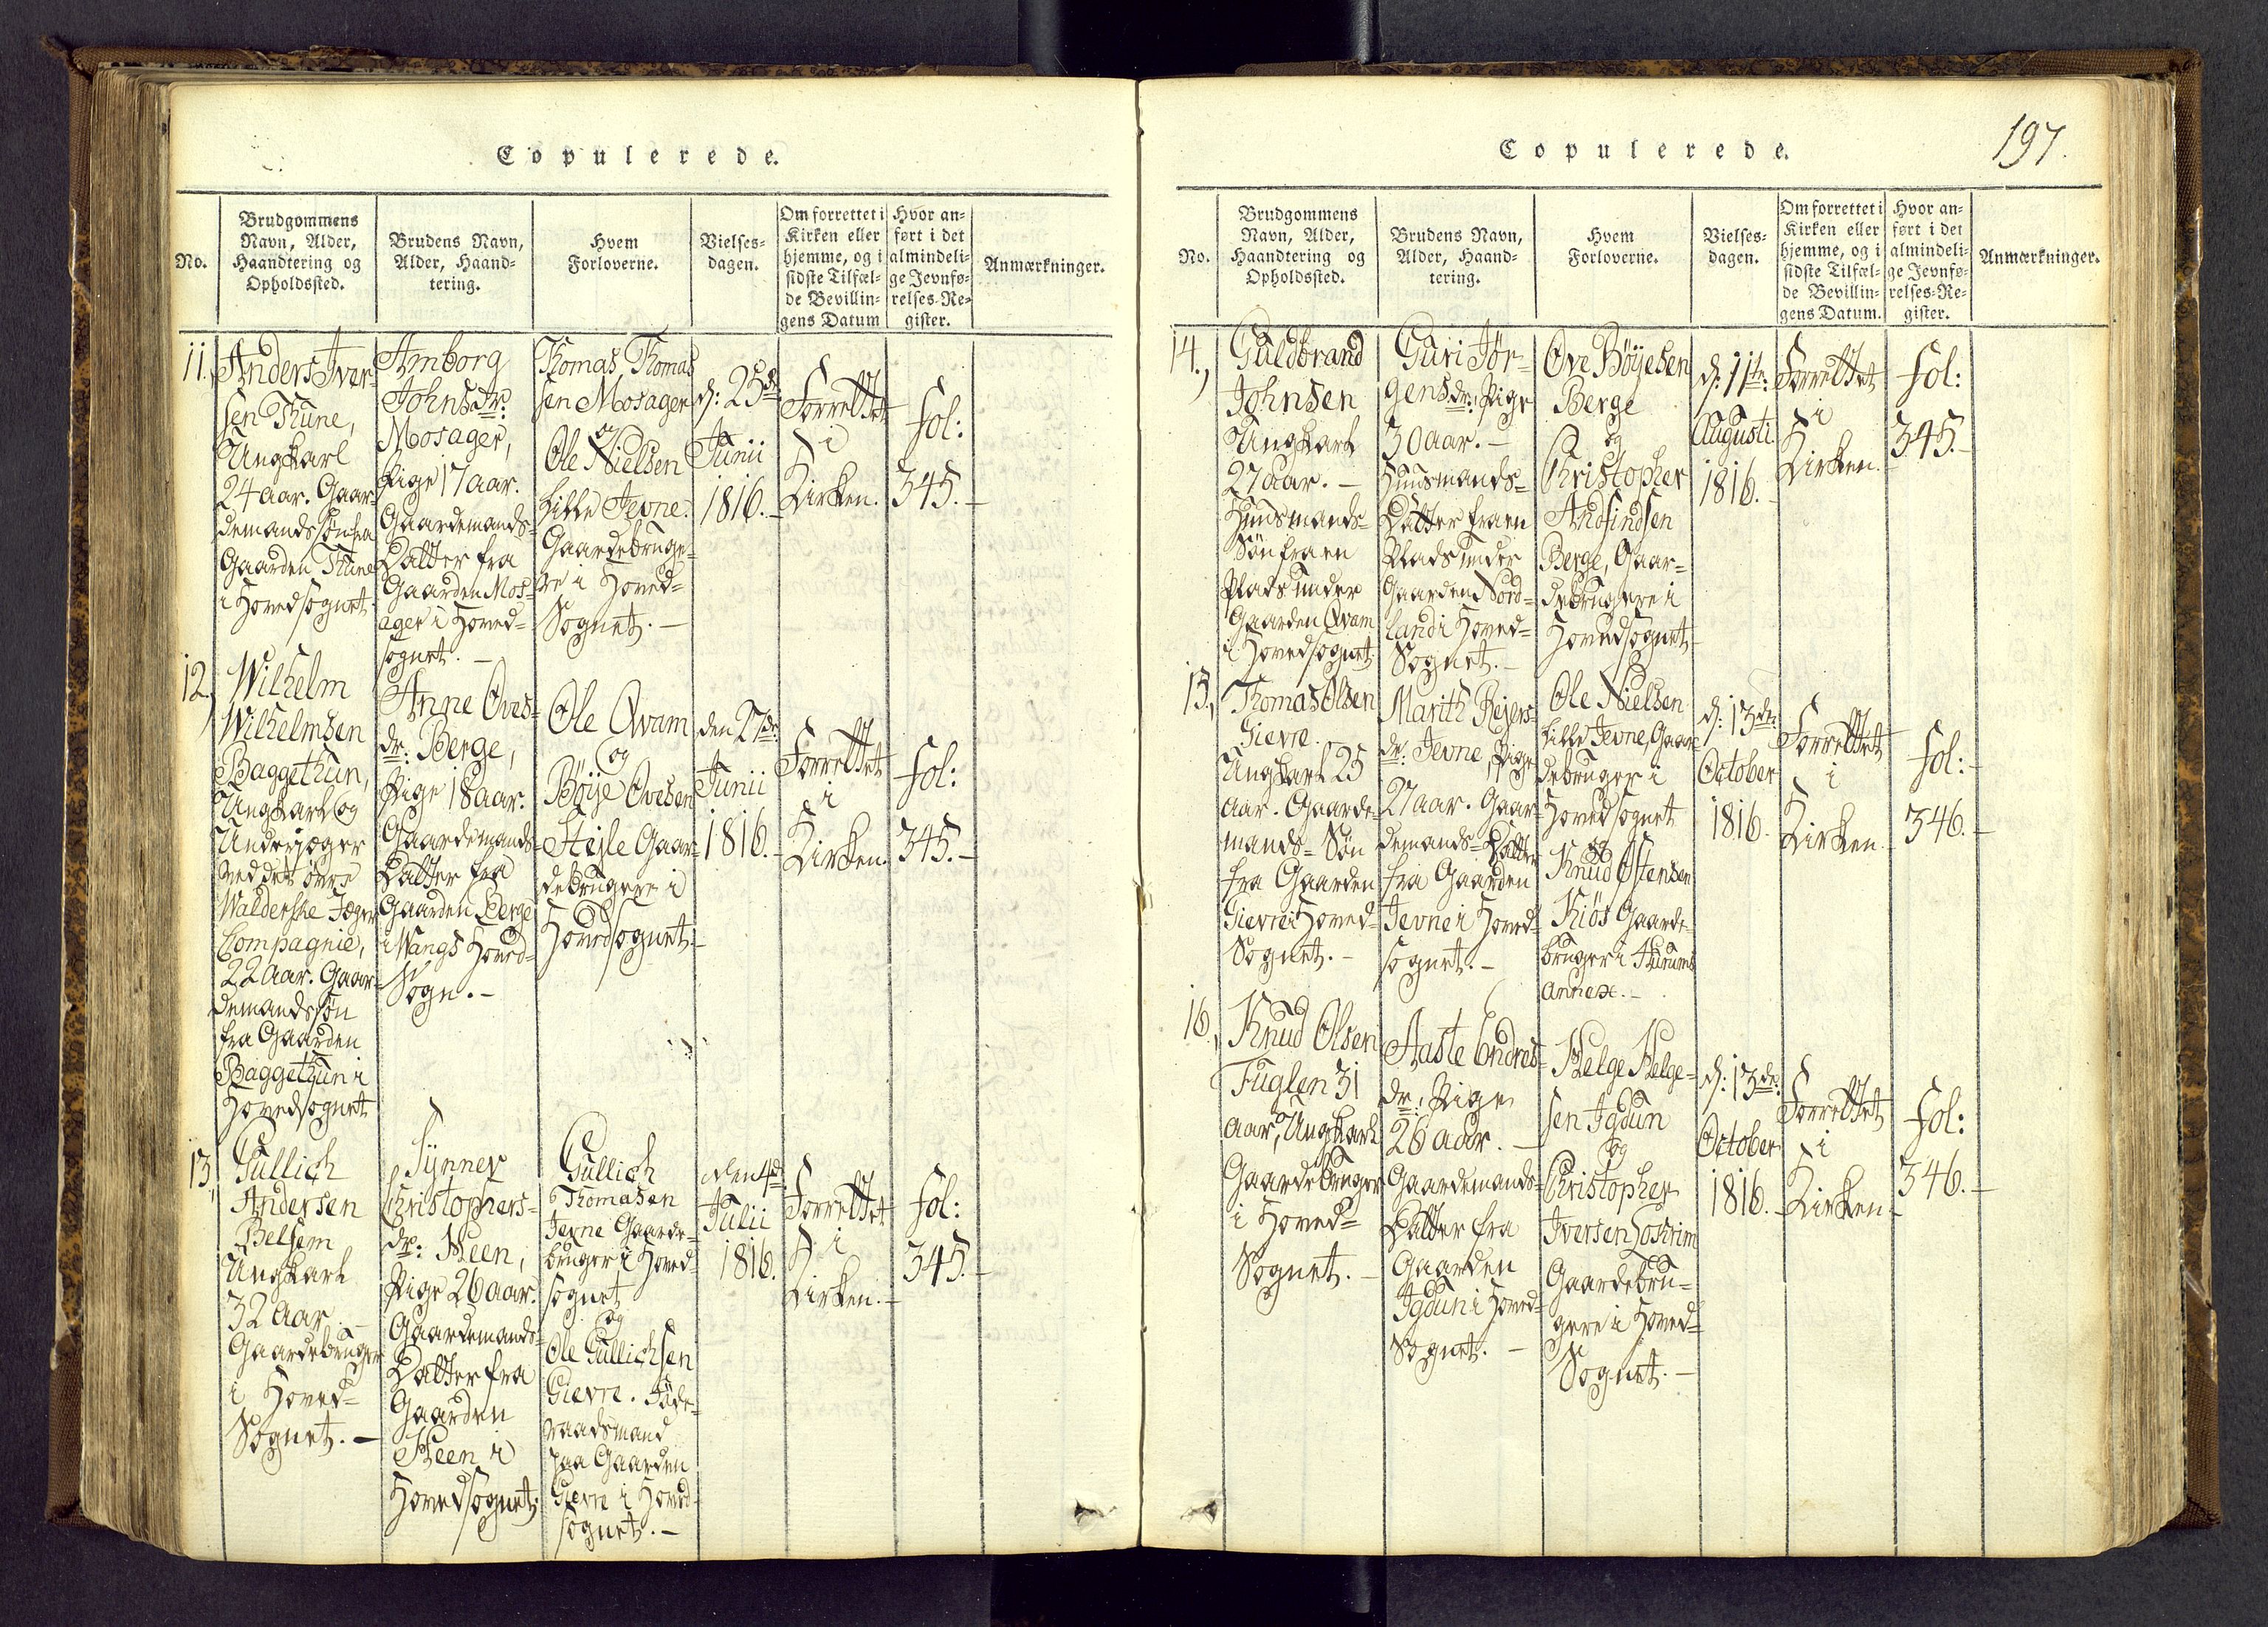 Copulerede.
No.
Brudgommens
Navn, Alder,
Haandtering og
Opholdssted.
Brudens Navn,
Alder, Haand-
tering.
Hvem
Forloverne.
Vielses-
dagen.
Om forrettet i
Kirken eller
hjemme, og i
sidste Tilfæl-
de Bevillin-
gens Datum
Hvor an-
ført i det
almindeli-
ge Jevnfø-
relses-Re-
gister.
Anmærkninger.
11.,
Anders Iver-
sen Thune,
Ungkarl
24 aar. Gaar-
demandssøn fra
Gaarden Thune
i Hovedsognet.
Amborg
Johnsdr:
Mosager,
Pige 17 aar.
Gaardemands-
Datter fra
Gaarden Mos-
ager i Hoved-
sognet. -
Thomas Thoma-
sen Mosager
og
Ole Nielsen
Lille Jevne.
Gaardebruge-
re i Hoved-
Sognet. -
d: 25de
Junii
1816. -
Forrettet
i
Kirken.
Fol:
345. -
12.,
Wilhelm
Wilhelmsen
Baggethun,
Ungkarl og
Underjæger
ved det øvre
Walderske Jæger
Compagnie,
22 Aar. Gaar-
demandssøn
fra Gaarden
Baggethun i
Hovedsognet
Anne Oves-
dr: Berge,
Pige 18 aar.
Gaardemands
Datter fra
Gaarden Berge
i Wangs Hoved-
Sogn. -
Ole Qvam
og
Böye Ovesen
Steile Gaar-
debrugere i
Hovedsognet. -
den 27de
Junii
1816. -
Forrettet
i
Kirken.
Fol:
345. -
13.,
Gullich
Andersen
Belsem
Ungkarl
32 Aar. -
Gaardebruger
i Hoved-
Sognet. -
Synnev
Christophers-
dr: Heen,
Pige 26 aar.
Gaardemands-
Datter fra
Gaarden
Heen i
Hovedsognet.
Gullich
Thomasen
Jevne Gaarde-
bruger i Hoved-
sognet
og
Ole Gullichsen
Gievre.
raadsmand
paa Gaarden
Gievre i Hoved-
sognet. -
den 4de
Julii
1816.
Forrettet
i
Kirken. -
Fol:
345. -
Copulerede.
197.
No.
Brudgommens
Navn, Alder,
Haandtering og
Opholdssted.
Brudens Navn,
Alder, Haand-
tering.
Hvem
Forloverne.
Vielses-
dagen.
Om forrettet i
Kirken eller
hjemme, og i
sidste Tilfæl-
de Bevillin-
gens Datum.
Hvor an-
ført i det
almindeli-
ge Jevnfø-
relses-Re-
gister.
Anmærkninger.
14.,
Guldbrand
Johnsen
Ungkarl
27 aar. -
Huusmands-
Søn fra en
Plads under
Gaarden Qvam
i Hovedsognet.
Guri Jør-
gensdr:, Pige
30 aar. -
Huusmands-
Datter fra en
Plads under
Gaarden Nord-
land i Hoved-
Sognet. -
Ove Böyesen
Berge
og
Christopher
Andfindsen
Berge, Gaar-
debrugere i
Hovedsognet
d: 11te
Augusti
1816. -
Forrettet
i
Kirken.
Fol:
345. -
15.,
Thomas Olsen
Gievre.
Ungkarl 25
aar. Gaarde-
mands-Søn
fra Gaarden
Gievre i Hoved-
Sognet. -
Marith Reiers-
dr: Jevne, Pige
27 aar. Gaar-
demands-Datter
fra Gaarden
Jevne i Hoved-
sognet. -
Ole Nielsen
Lille Jevne, Gaar-
debruger i
Hovedsognet
og
Knud Østensen
Kiøs Gaarde-
bruger i Hurums
Annex. -
d: 13de
October
1816.
Forrettet
i
Kirken.
Fol:
346. -
16.,
Knud Olsen
Fuglen 31
aar, Ungkarl
Gaardebruger
i Hoved-
Sognet. -
Aaste Endres-
dr:, Pige
26 aar. -
Gaardemands-
Datter fra
Gaarden
Igdun i Hoved-
Sognet. -
Helge Helge-
sen Igdun
og
Christopher
Iversen Losrim
Gaardebru-
gere i Hoved-
Sognet. -
d: 13de
October
1816. -
Forrettet
i
Kirken. -
Fol:
346. -